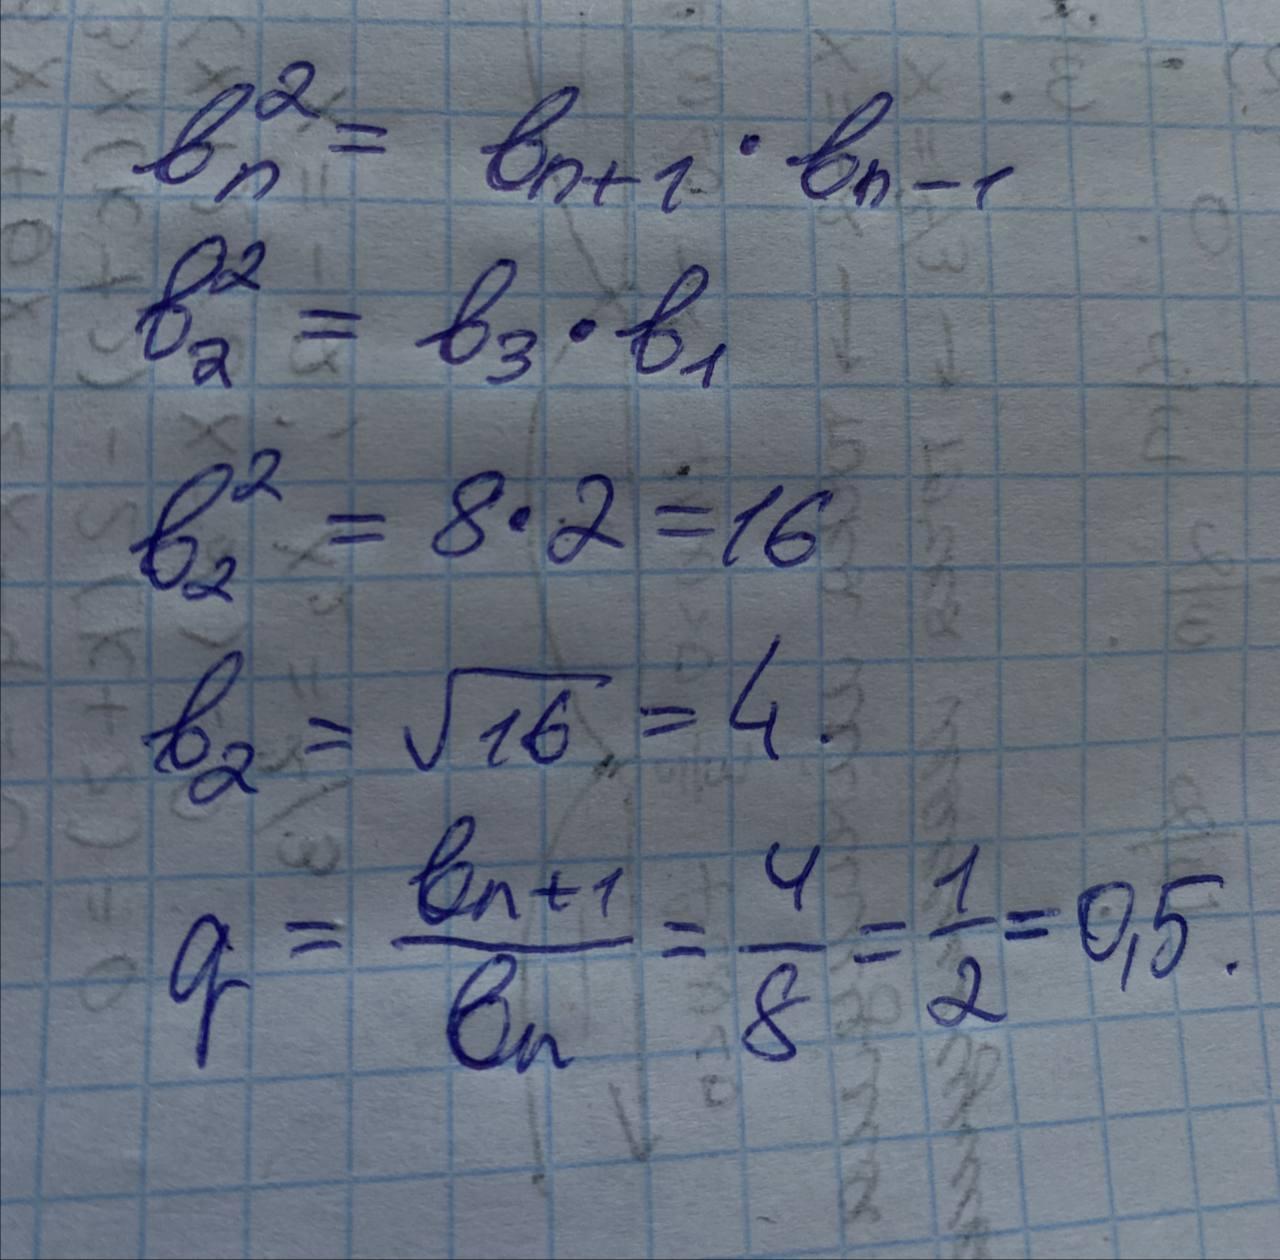 bₙ² = bₙ₊₁ · bₙ₋₁
b₂² = b₃ · b₁
b₂² = 8 · 2 = 16
b₂ = √16 = 4.
q = bₙ₊₁/bₙ = 4/8 = 1/2 = 0,5.